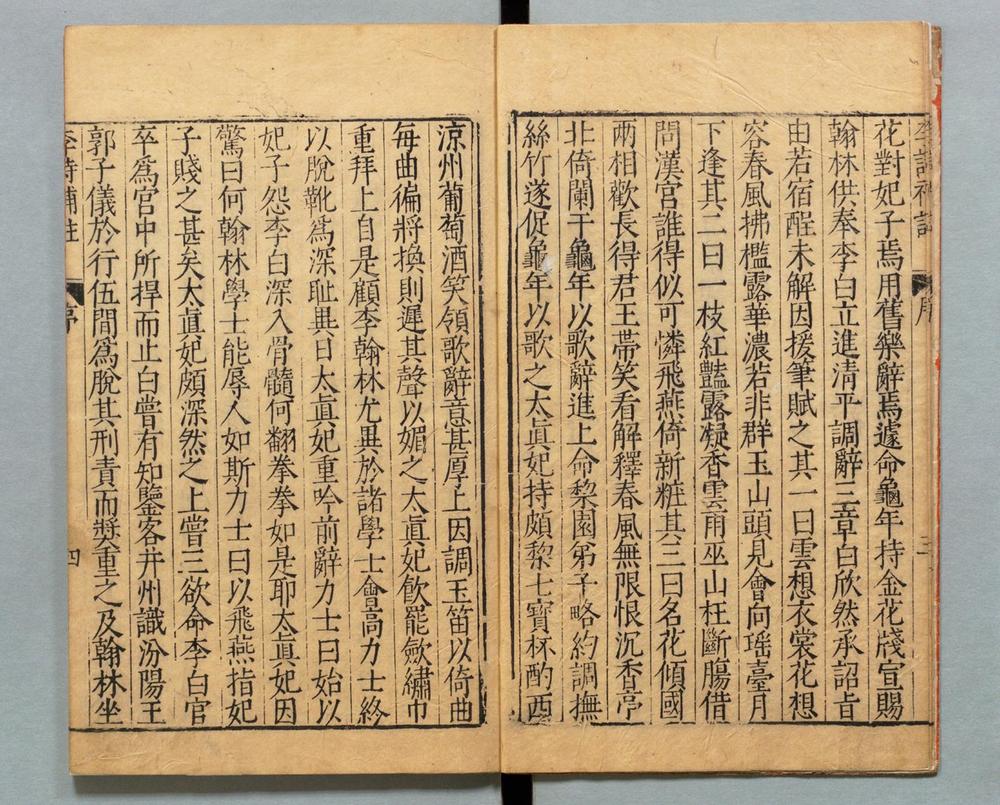 李詩補註 序 三
花對妃子焉用舊樂辭焉遽命龜年持金花牋宣賜
翰林供奉李白立進淸平調辭三章白欣然承詔㫖
由若宿酲未解因援筆賦之其一曰雲想衣裳花想
容春風拂檻露華濃若非群玉山頭見會向瑶臺月
下逢其二曰一枝紅豔露凝香雲雨巫山枉斷膓借
問漢宮誰得似可憐飛燕倚新粧其三曰名花傾國
兩相歡長得君王帶笑看解釋春風無限恨沉香亭
北倚闌干龜年以歌辭進上命梨園弟子略約調撫
絲竹遂促龜年以歌之太眞妃持頗黎七寶杯酌西
涼州葡萄酒笑領歌辭意甚厚上因調玉笛以倚曲
每曲徧將換則遲其聲以媚之太眞妃飲罷歛繡巾
重拜上自是顧李翰林尤異於諸學士會高力士終
以脫靴爲深耻異日太眞妃重吟前辭力士曰始以
妃子怨李白深入骨髓何翻拳拳如是耶太眞妃因
驚曰何翰林學士能辱人如斯力士曰以飛燕指妃
子賤之甚矣太眞妃頗深然之上嘗三欲命李白官
卒爲宮中所捍而止白嘗有知鑒客并州識汾陽王
郭子儀於行伍間爲脫其刑責而奬重之及翰林坐
李詩補註 序 四